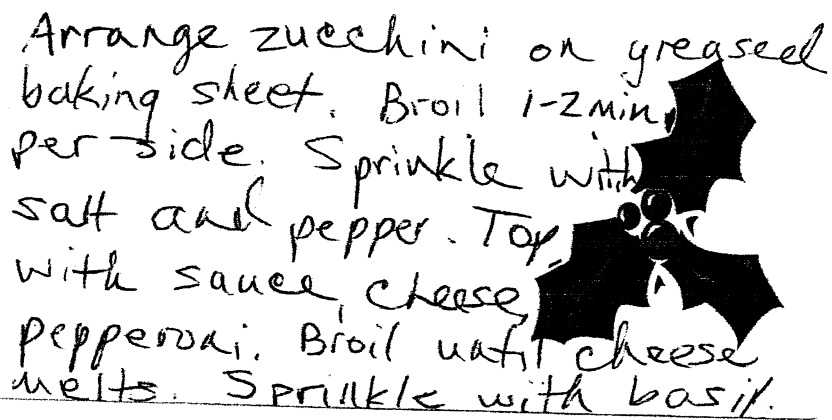 Arrange zucchini on greased
baking sheet. Broil 1-2 min.
per side. Sprinkle with
salt and pepper. Top
with sauce, cheese,
pepperoni. Broil until cheese
melts. Sprinkle with basil.